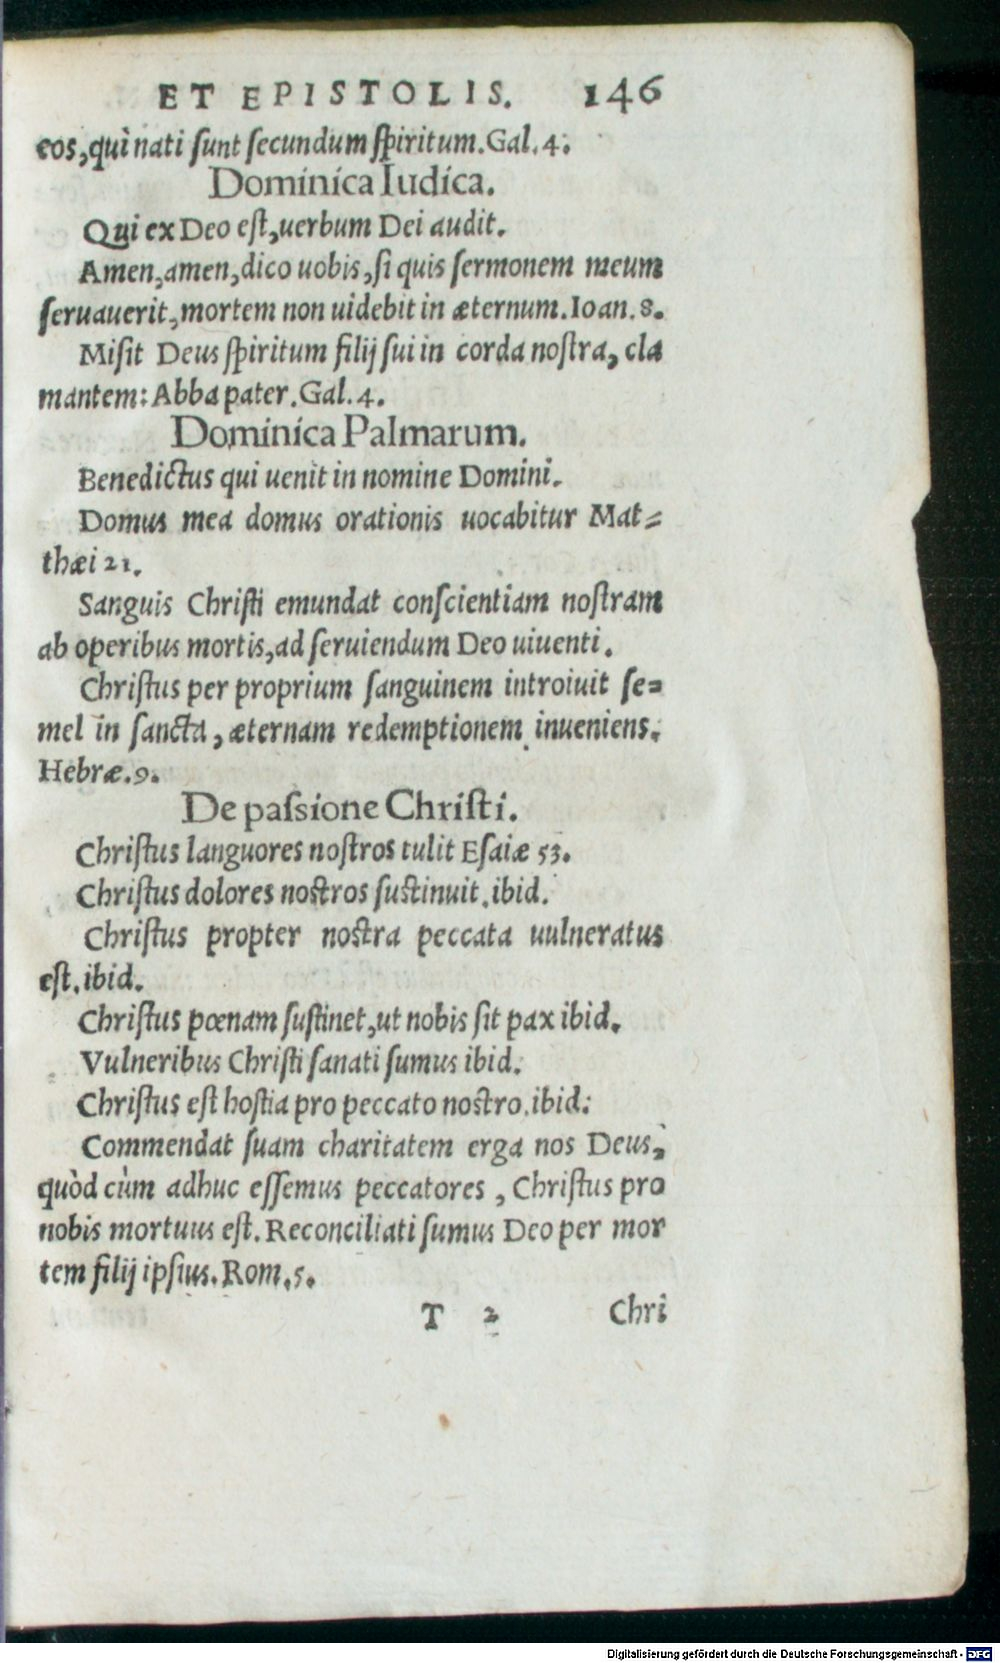 ET EPISTOLIS. 146
eos, qui nati sunt secundum spiritum. Gal. 4.
Dominica Iudica.
Qui ex Deo est, uerbum Dei audit.
Amen, amen, dico uobis, si quis sermonem meum
seruauerit, mortem non uidebit in æternum. Ioan. 8.
Misit Deus spiritum filij sui in corda nostra, cla
mantem: Abba pater. Gal. 4.
Dominica Palmarum.
Benedictus qui uenit in nomine Domini.
Domus mea domus orationis uocabitur Mat=
thæi 21.
Sanguis Christi emundat conscientiam nostram
ab operibus mortis, ad seruiendum Deo uiuenti.
Christus per proprium sanguinem introiuit se=
mel in sancta, æternam redemptionem inueniens.
Hebræ. 9.
De passione Christi.
Christus languores nostros tulit Esaiæ 53.
Christus dolores nostros sustinuit. ibid.
Christus propter nostra peccata uulneratus
est. ibid.
Christus pœnam sustinet, ut nobis sit pax ibid.
Vulneribus Christi sanati sumus ibid.
Christus est hostia pro peccato nostro. ibid:
Commendat suam charitatem erga nos Deus,
quòd cùm adhuc essemus peccatores, Christus pro
nobis mortuus est. Reconciliati sumus Deo per mor
tem filij ipsius. Rom. 5.
T 2 Chri
Digitalisierung gefördert durch die Deutsche Forschungsgemeinschaft - DFG